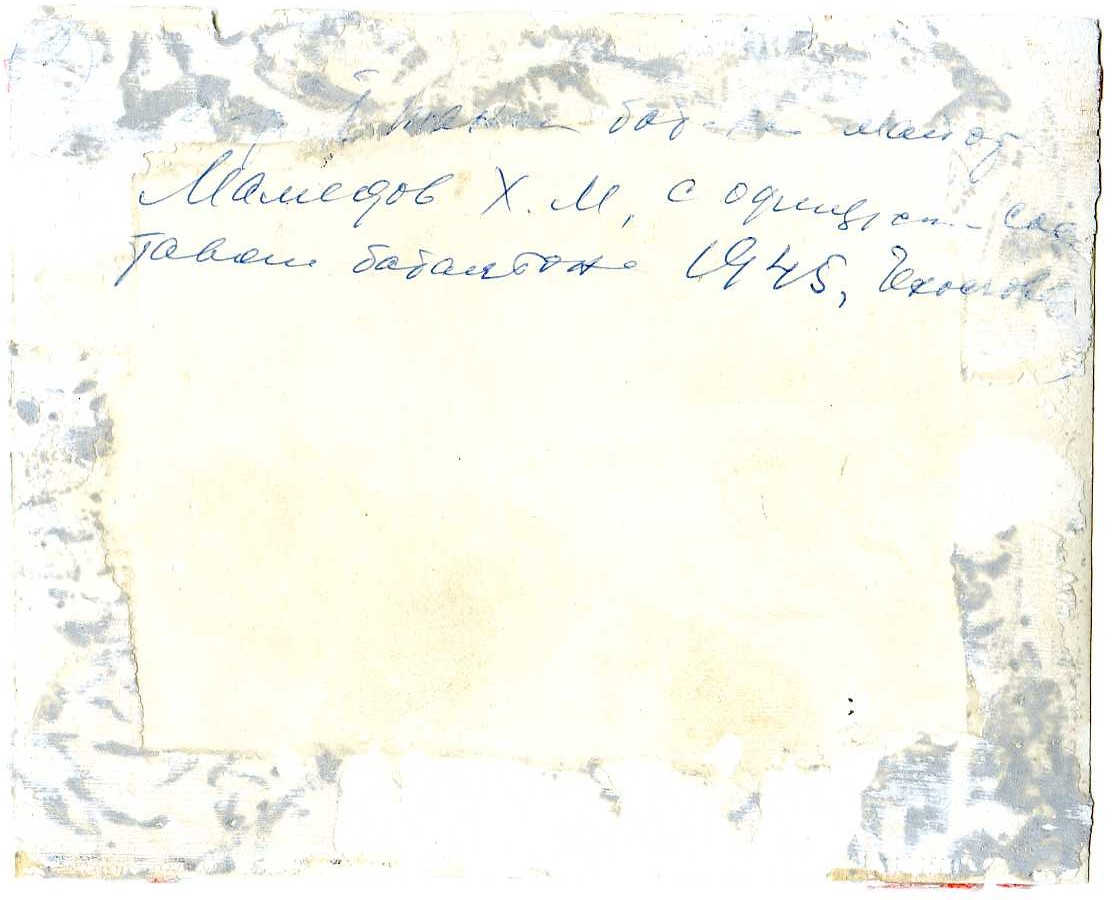 бат-на майор
Мамедов Х.М, с офицерск. сос
тавом батальона 1945, Чехослов